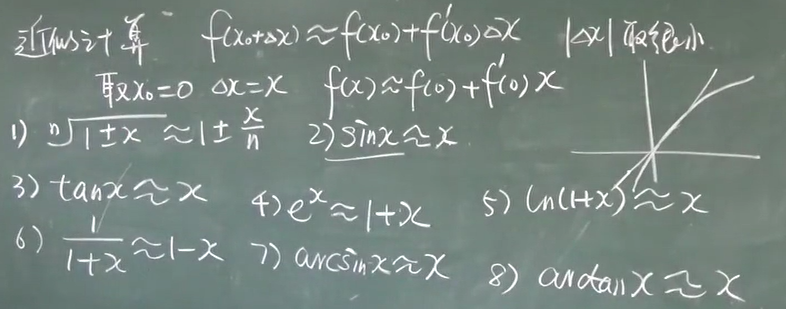 近似计算 f(x₀+Δx)≈f(x₀)+f'(x₀)Δx |Δx|取很小
取x₀=0 Δx=x f(x)≈f(0)+f'(0)x
1) ⁿ√(1±x) ≈1±x/n 2) sinx≈x
3) tanx≈x 4) eˣ≈1+x 5) ln(1+x)≈x
6) 1/(1+x)≈1-x 7) arcsinx≈x 8) arctanx≈x